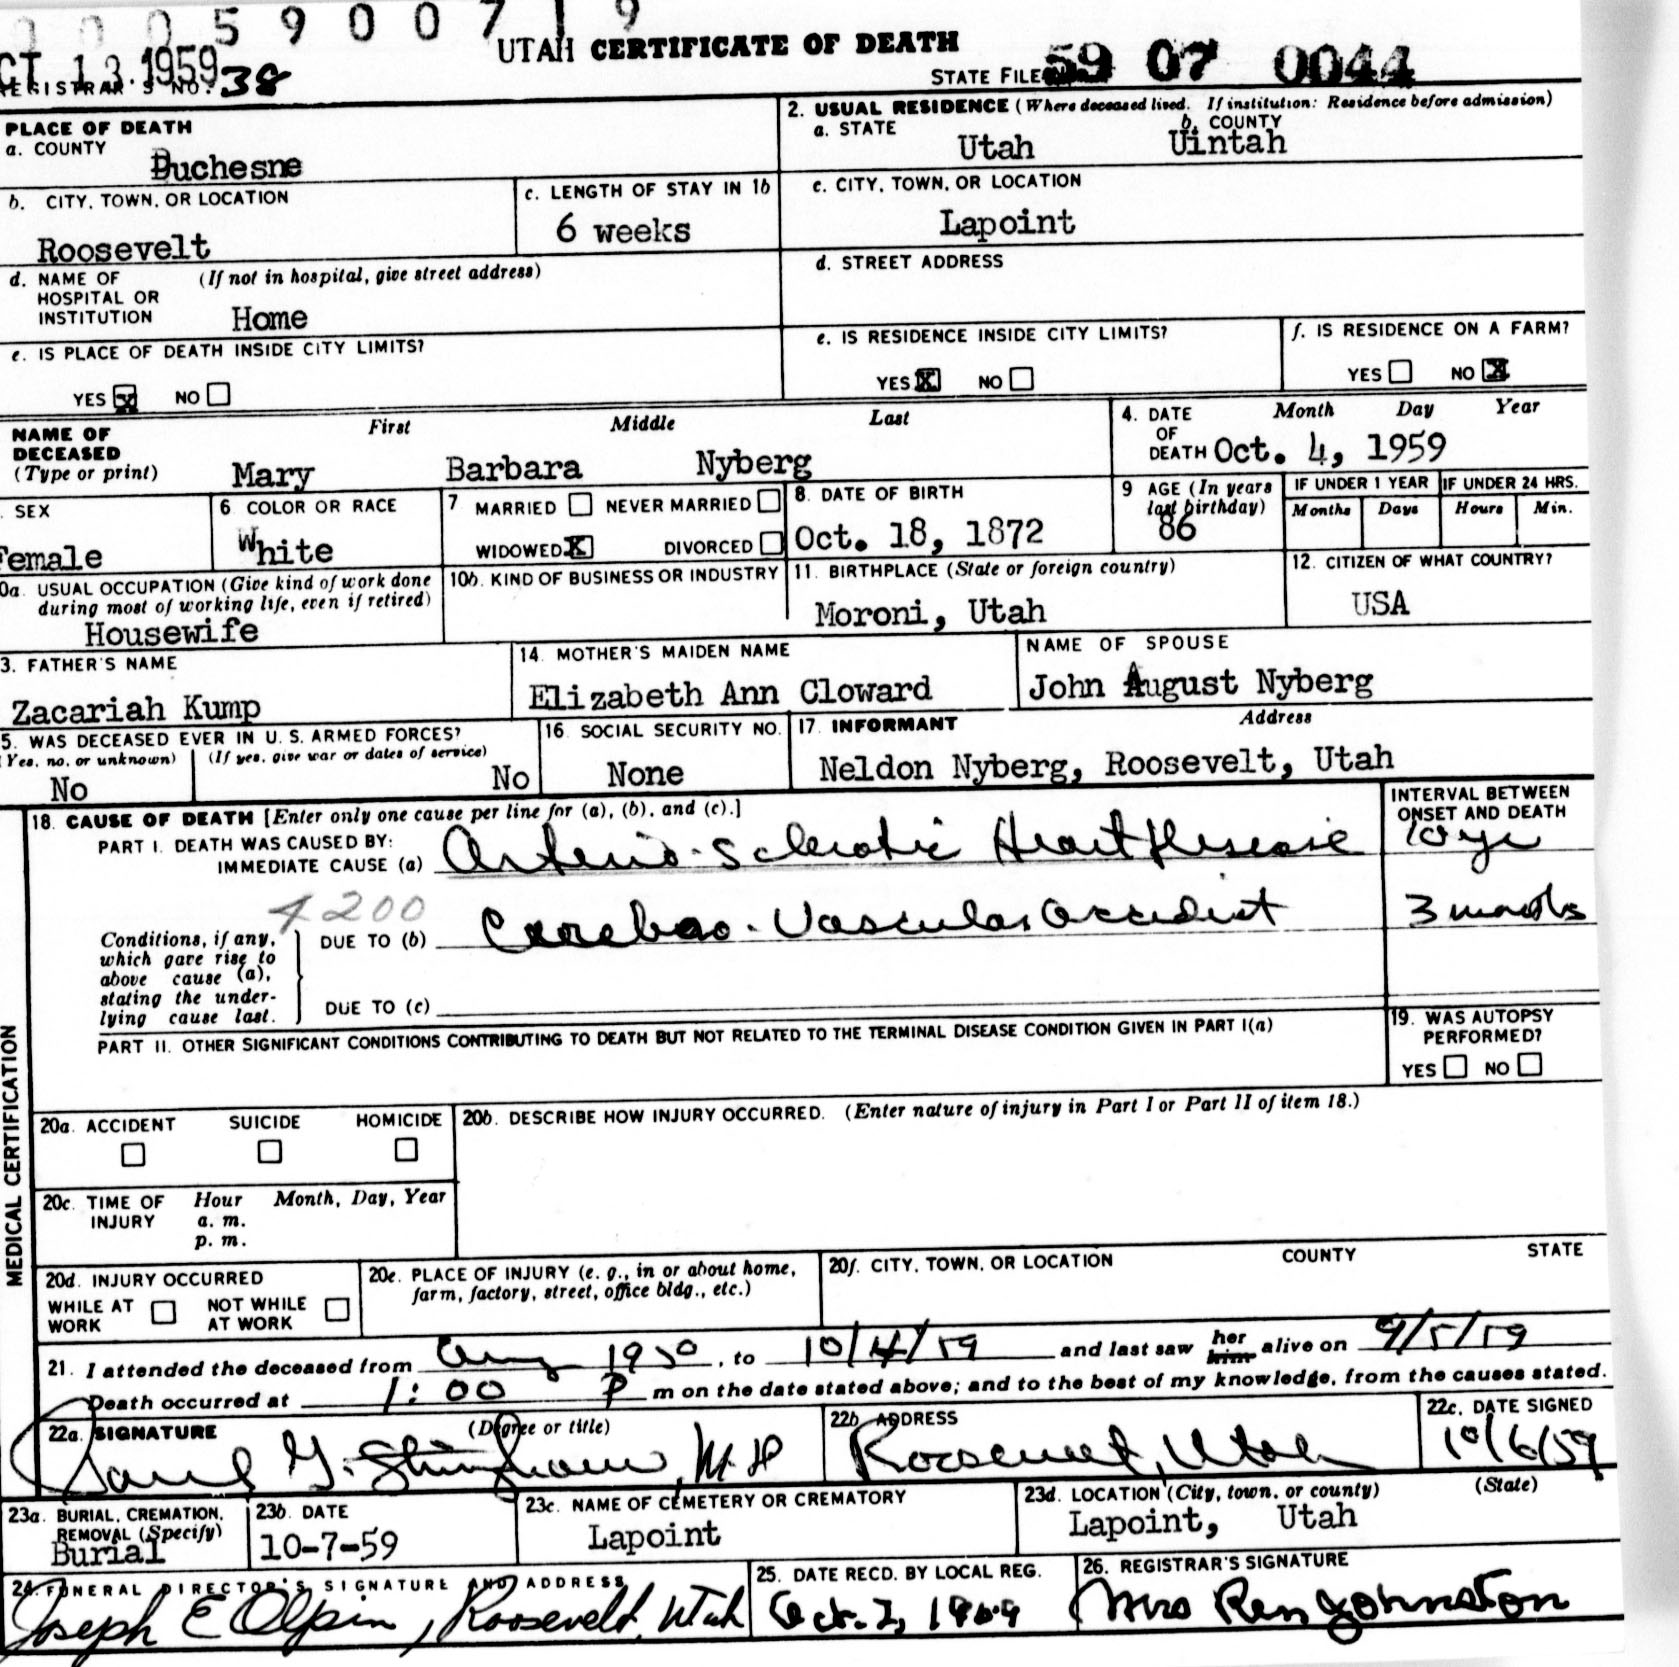 00059007 19
UTAH CERTIFICATE OF DEATH
CT 13.1959
REGISTRAR'S NO. 38
STATE FILE 59 07 0044
PLACE OF DEATH
a. COUNTY
Duchesne
2. USUAL RESIDENCE (Where deceased lived. If institution: Residence before admission)
a. STATE Utah
b. COUNTY Uintah
b. CITY, TOWN, OR LOCATION
Roosevelt
c. LENGTH OF STAY IN 1b
6 weeks
c. CITY, TOWN, OR LOCATION
Lapoint
d. NAME OF HOSPITAL OR INSTITUTION (If not in hospital, give street address)
Home
d. STREET ADDRESS
e. IS PLACE OF DEATH INSIDE CITY LIMITS?
YES X NO
e. IS RESIDENCE INSIDE CITY LIMITS?
YES X NO
f. IS RESIDENCE ON A FARM?
YES NO X
NAME OF DECEASED (Type or print)
First Middle Last
Mary Barbara Nyberg
4. DATE OF DEATH Month Day Year
Oct. 4, 1959
. SEX
Female
6 COLOR OR RACE
White
7 MARRIED NEVER MARRIED
WIDOWED X DIVORCED
8. DATE OF BIRTH
Oct. 18, 1872
9 AGE (In years last birthday)
86
IF UNDER 1 YEAR IF UNDER 24 HRS.
Months Days Hours Min.
0a. USUAL OCCUPATION (Give kind of work done during most of working life, even if retired)
Housewife
10b. KIND OF BUSINESS OR INDUSTRY
11. BIRTHPLACE (State or foreign country)
Moroni, Utah
12. CITIZEN OF WHAT COUNTRY?
USA
3. FATHER'S NAME
Zacariah Kump
14. MOTHER'S MAIDEN NAME
Elizabeth Ann Cloward
NAME OF SPOUSE
John August Nyberg
5. WAS DECEASED EVER IN U. S. ARMED FORCES?
(Yes, no, or unknown) (If yes, give war or dates of service)
No No
16. SOCIAL SECURITY NO.
None
17. INFORMANT Address
Neldon Nyberg, Roosevelt, Utah
MEDICAL CERTIFICATION
18. CAUSE OF DEATH [Enter only one cause per line for (a), (b), and (c).]
INTERVAL BETWEEN ONSET AND DEATH
PART I. DEATH WAS CAUSED BY:
IMMEDIATE CAUSE (a) Arterio-Sclerotic Heart Disease 10 yr
4200
Conditions, if any, which gave rise to above cause (a), stating the underlying cause last.
DUE TO (b) Cerebro-Vascular Accident 3 months
DUE TO (c)
PART II. OTHER SIGNIFICANT CONDITIONS CONTRIBUTING TO DEATH BUT NOT RELATED TO THE TERMINAL DISEASE CONDITION GIVEN IN PART I(a)
19. WAS AUTOPSY PERFORMED?
YES NO
20a. ACCIDENT SUICIDE HOMICIDE
20b. DESCRIBE HOW INJURY OCCURRED. (Enter nature of injury in Part I or Part II of item 18.)
20c. TIME OF INJURY Hour Month, Day, Year
a. m.
p. m.
20d. INJURY OCCURRED
WHILE AT WORK NOT WHILE AT WORK
20e. PLACE OF INJURY (e. g., in or about home, farm, factory, street, office bldg., etc.)
20f. CITY, TOWN, OR LOCATION COUNTY STATE
21. I attended the deceased from Aug 1950, to 10/4/59 and last saw her him alive on 9/5/59
Death occurred at 1:00 P m on the date stated above; and to the best of my knowledge, from the causes stated.
22a. SIGNATURE (Degree or title)
G. Stringham, M.D
22b. ADDRESS
Roosevelt, Utah
22c. DATE SIGNED
10/6/59
23a. BURIAL, CREMATION, REMOVAL (Specify)
Burial
23b. DATE
10-7-59
23c. NAME OF CEMETERY OR CREMATORY
Lapoint
23d. LOCATION (City, town, or county) (State)
Lapoint, Utah
24. FUNERAL DIRECTOR'S SIGNATURE AND ADDRESS
Joseph E Olpin, Roosevelt, Utah
25. DATE RECD. BY LOCAL REG.
Oct. 7, 1959
26. REGISTRAR'S SIGNATURE
Mrs Ren Johnston